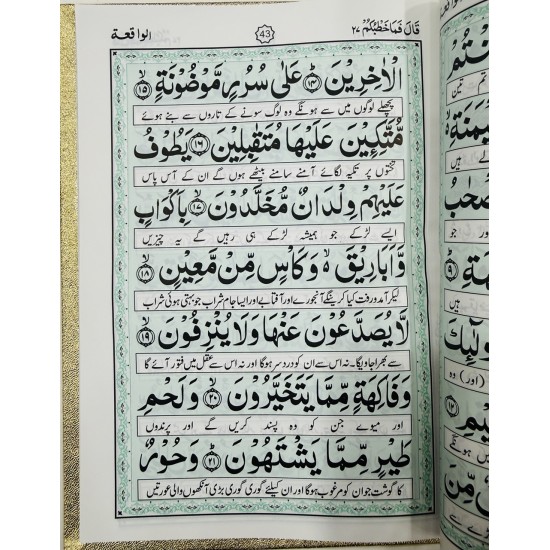 قَالَ فَمَا خَطْبُكُمْ ٢٧
43
الواقعة
الْاٰخِرِيْنَ ۝۱۴ عَلٰى سُرُرٍ مَّوْضُوْنَةٍ ۝۱۵
پچھلے لوگوں میں سے ہونگے وہ لوگ سونے کے تاروں سے بنے ہوئے
مُّتَّكِـِٕيْنَ عَلَيْهَا مُتَقٰبِلِيْنَ ۝۱۶ يَطُوْفُ
تختوں پر تکیہ لگائے آمنے سامنے بیٹھے ہوں گے ان کے آس پاس
عَلَيْهِمْ وِلْدَانٌ مُّخَلَّدُوْنَ ۝۱۷ بِاَكْوَابٍ
ایسے لڑکے جو ہمیشہ لڑکے ہی رہیں گے یہ چیزیں
وَّاَبَارِيْقَ ۙ وَكَاْسٍ مِّنْ مَّعِيْنٍ ۝۱۸
لیکر آمدورفت کیا کرینگے آبخورے اور آفتابے اور ایسا جام شراب جو بہتی ہوئی شراب
لَّا يُصَدَّعُوْنَ عَنْهَا وَلَا يُنْزِفُوْنَ ۝۱۹
سے بھرا جاویگا۔ نہ اس سے ان کو دردسر ہوگا اور نہ اس سے عقل میں فتور آئے گا
وَفَاكِهَةٍ مِّمَّا يَتَخَيَّرُوْنَ ۝۲۰ وَلَحْمِ
اور میوے جن کو وہ پسند کریں گے اور پرندوں
طَيْرٍ مِّمَّا يَشْتَهُوْنَ ۝۲۱ وَحُوْرٌ
کا گوشت جو ان کو مرغوب ہوگا اور ان کیلئے گوری گوری بڑی آنکھوں والی عورتیں